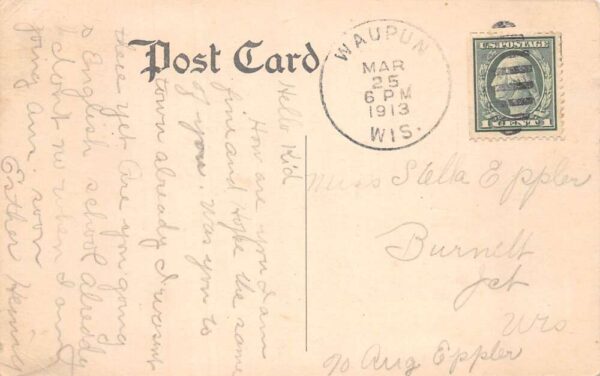 Post Card
WAUPUN
MAR
25
6 PM
1913
WIS.
U.S. POSTAGE
1 CENT 1
Hello Kid
How are you I am
fine and Hope the same
of you. Was you to
town already I wasent
there yet Are you going
English school already
I dont no when I am
going ans. soon
Esther
Miss Stella Eppler
Burnett
Jct
Wis
c/o Aug Eppler